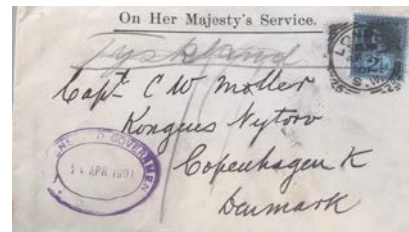 On Her Majesty's Service.
Tyskland
Capt. C W Moller
Kongens Nytorv
Copenhagen K
Denmark
GOVERNMEN
APR 1901
LOND
S.W.
25